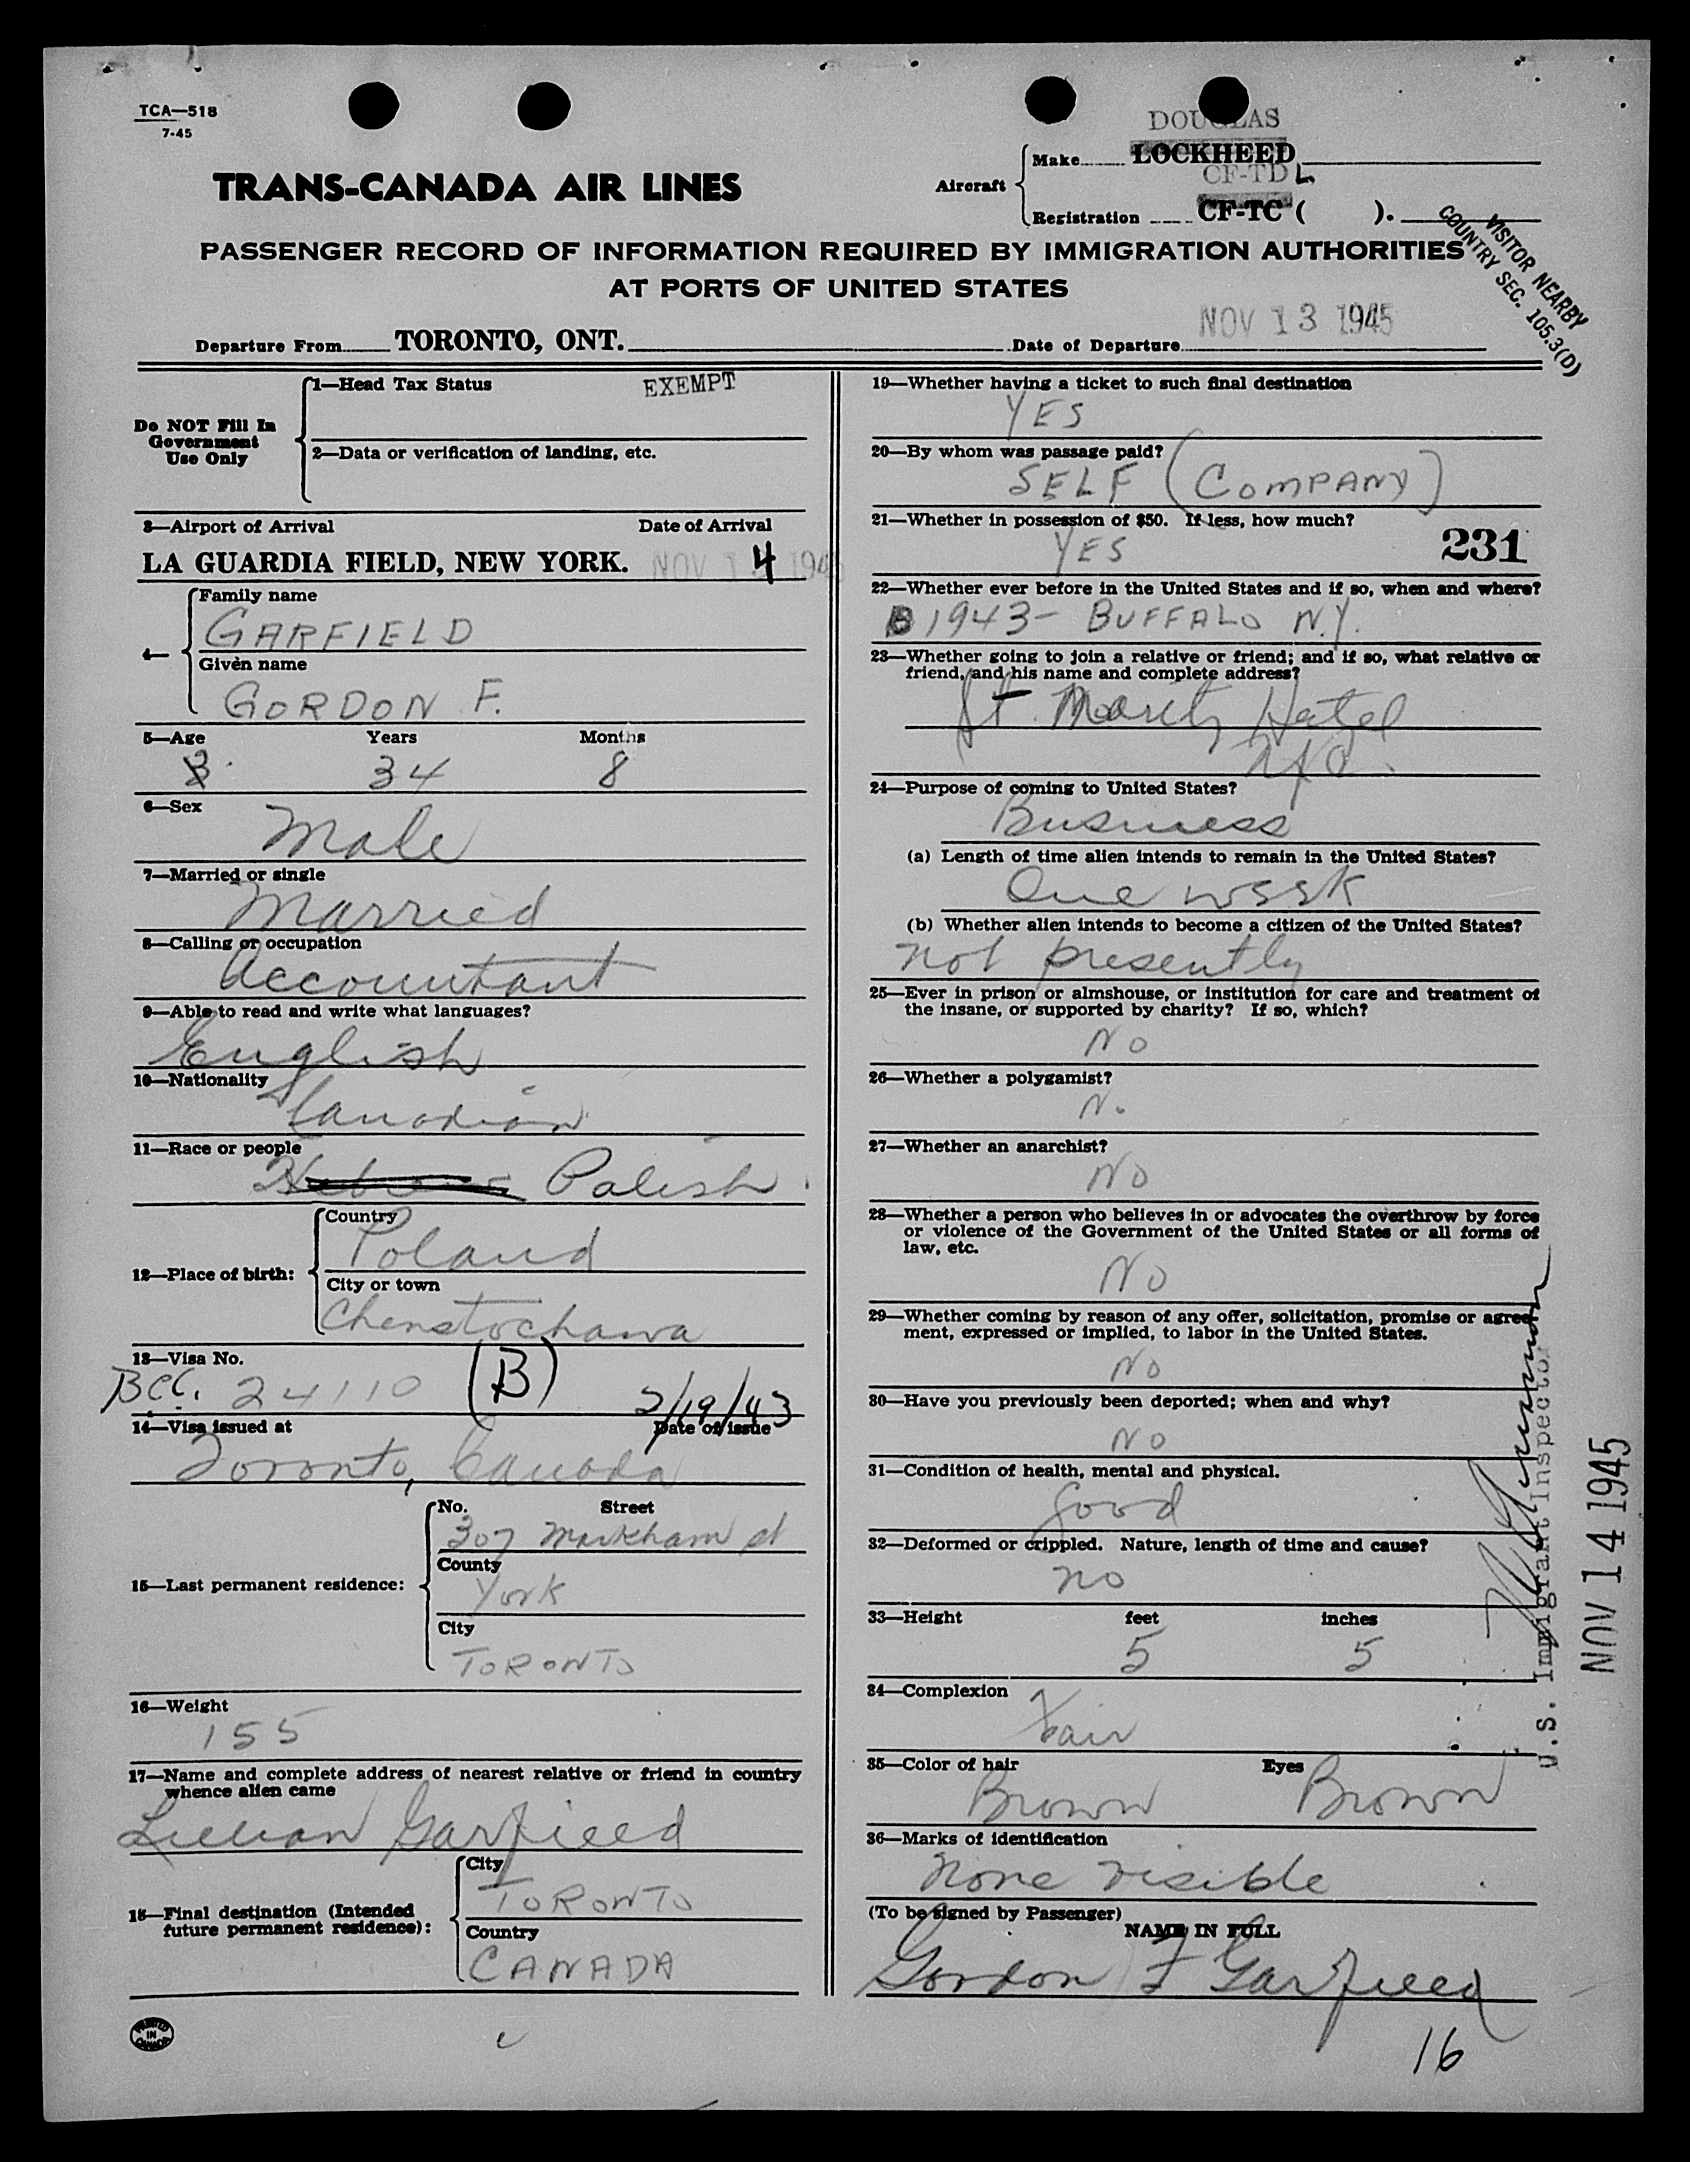 TCA—518
7-45
TRANS-CANADA AIR LINES
DOUGLAS
Aircraft
Make LOCKHEED
CF-TDL
Registration CF-TC ( ).
PASSENGER RECORD OF INFORMATION REQUIRED BY IMMIGRATION AUTHORITIES
AT PORTS OF UNITED STATES
VISITOR NEARBY
COUNTRY SEC. 105.3(D)
Departure From TORONTO, ONT. Date of Departure NOV 13 1945
Do NOT Fill In
Government
Use Only
1—Head Tax Status EXEMPT
2—Data or verification of landing, etc.
3—Airport of Arrival Date of Arrival
LA GUARDIA FIELD, NEW YORK. NOV 14 1945
4—
Family name
GARFIELD
Given name
GORDON F.
5—Age Years Months
3 34 8
6—Sex
Male
7—Married or single
Married
8—Calling or occupation
Accountant
9—Able to read and write what languages?
English
10—Nationality
Canadian
11—Race or people
Hebrew Polish
12—Place of birth:
Country
Poland
City or town
Chenstochawa
13—Visa No.
BCC. 24110 (B) 2/19/43
14—Visa issued at Date of issue
Toronto, Canada
15—Last permanent residence:
No. Street
307 Markham St
County
York
City
TORONTO
16—Weight
155
17—Name and complete address of nearest relative or friend in country
whence alien came
Lillian Garfield
18—Final destination (Intended
future permanent residence):
City
TORONTO
Country
CANADA
PRINTED
IN
CANADA
19—Whether having a ticket to such final destination
YES
20—By whom was passage paid?
SELF (COMPANY)
21—Whether in possession of $50. If less, how much?
YES
231
22—Whether ever before in the United States and if so, when and where?
1943- BUFFALO N.Y.
23—Whether going to join a relative or friend; and if so, what relative or
friend, and his name and complete address?
St. Moritz Hotel
NYC.
24—Purpose of coming to United States?
Business
(a) Length of time alien intends to remain in the United States?
One week
(b) Whether alien intends to become a citizen of the United States?
not presently
25—Ever in prison or almshouse, or institution for care and treatment of
the insane, or supported by charity? If so, which?
NO
26—Whether a polygamist?
No
27—Whether an anarchist?
NO
28—Whether a person who believes in or advocates the overthrow by force
or violence of the Government of the United States or all forms of
law, etc.
NO
29—Whether coming by reason of any offer, solicitation, promise or agree-
ment, expressed or implied, to labor in the United States.
NO
30—Have you previously been deported; when and why?
NO
31—Condition of health, mental and physical.
Good
32—Deformed or crippled. Nature, length of time and cause?
no
33—Height feet inches
5 5
34—Complexion
Fair
35—Color of hair Eyes
Brown Brown
36—Marks of identification
None visible
(To be signed by Passenger)
NAME IN FULL
Gordon F Garfield
16
U.S. Immigrant Inspector
NOV 14 1945